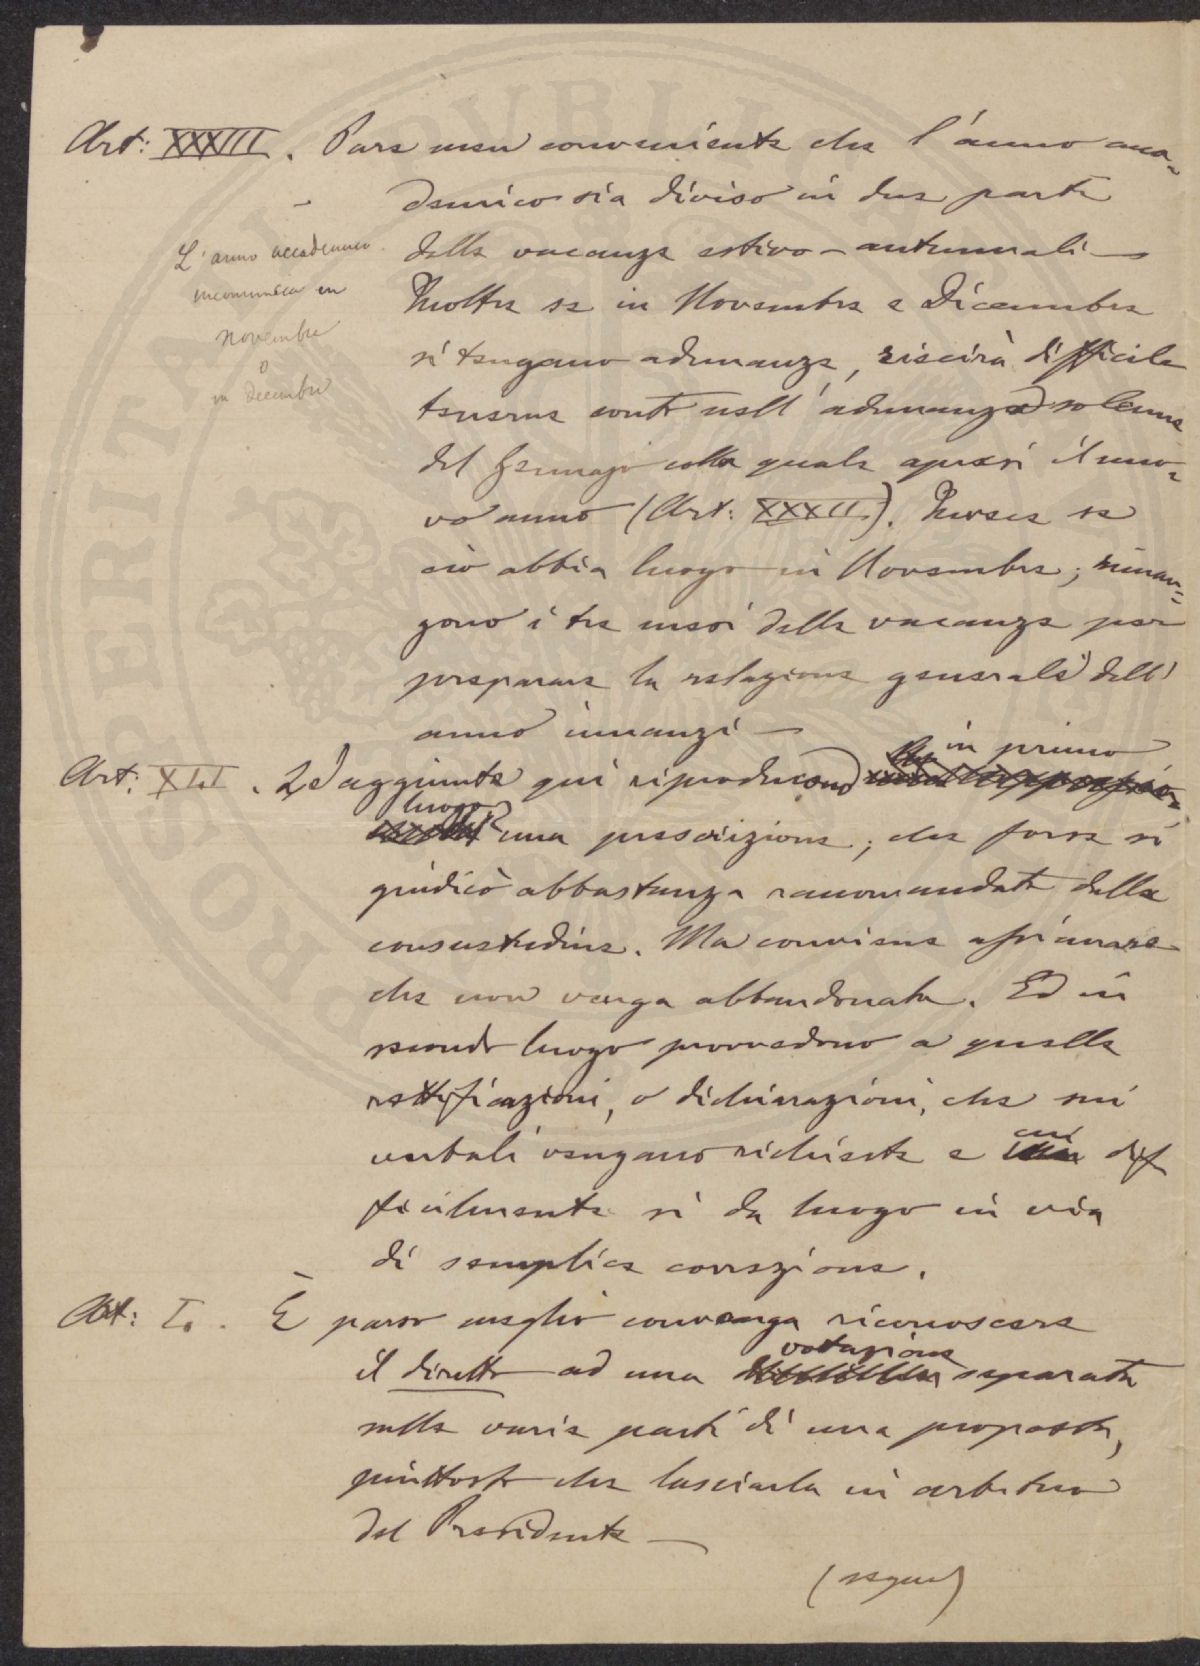 Art: XXXIII. Pare men conveniente che l'anno acca-
demico sia diviso in due parti
dalle vacanze estivo-autunnali —
Inoltre se in Novembre e Dicembre
si tengano adunanze, riescirà difficile
tenerne conto nell'adunanza solenne
del Gennajo colla quale apresi il nuo-
vo anno (Art: XXXII). Invece se
ciò abbia luogo in Novembre; riman-
gono i tre mesi delle vacanze per
preparare la relazione generale dell'
anno innanzi —
L'anno accademico
incomincia in
Novembre
o
in Decembre
Art: XLI. Le aggiunte qui riproducono in primo
luogo una prescrizione, che forse si
giudicò abbastanza raccomandata dalla
consuetudine. Ma conviene assicurare
che non venga abbandonata. Ed in
secondo luogo provvedono a quelle
rettificazioni, o dichiarazioni, che sui
verbali vengano richieste e cui dif
ficilmente si da luogo in via
di semplice correzione.
Art: L. È parso meglio convenga riconoscere
il diritto ad una votazione separata
sulle varie parti di una proposta,
piuttosto che lasciarla in arbitrio
del Presidente —
(segue)